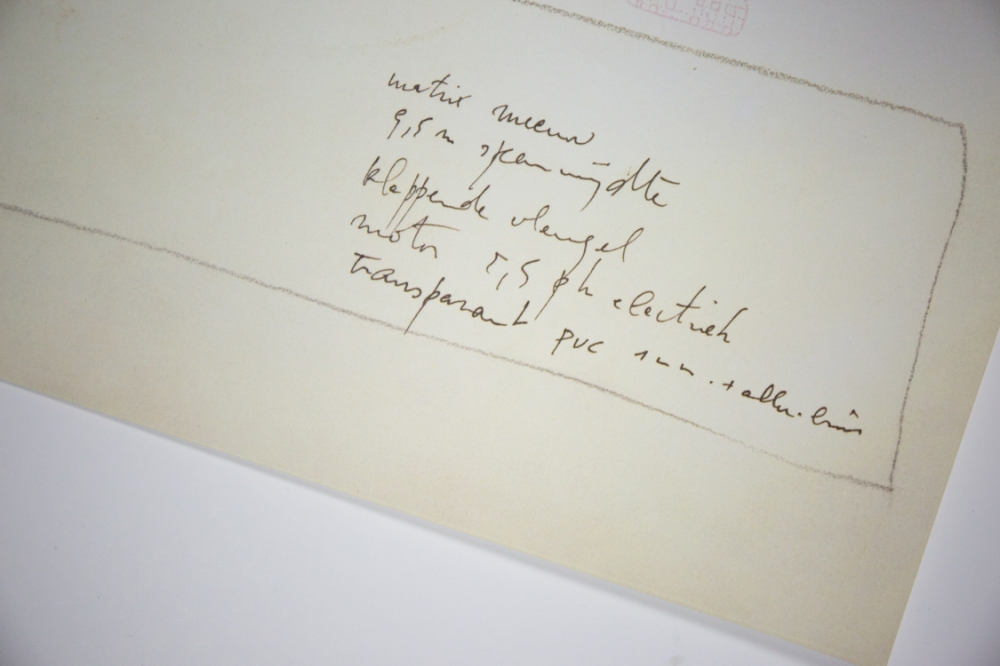 matrix meeuw
9,5 m spanwijdte
klappende vleugel
motor 5,5 pk electrisch
transparant PVC 1 mm. + allu. buis